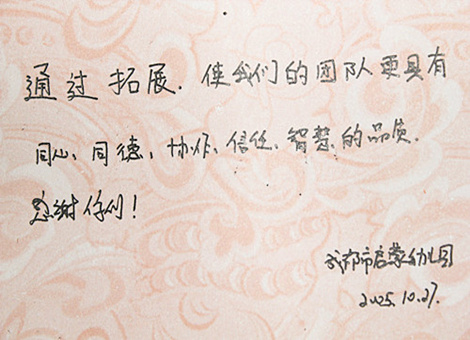 通过拓展.使我们的团队更具有
同心、同德、协作、信任、智慧的品质.
感谢你们!
成都市启蒙幼儿园
2005.10.27.